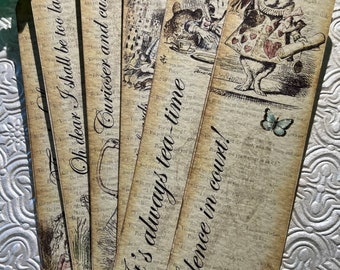 Oh dear I shall be too la
Curioser and cu
's always tea-time
lence in court!